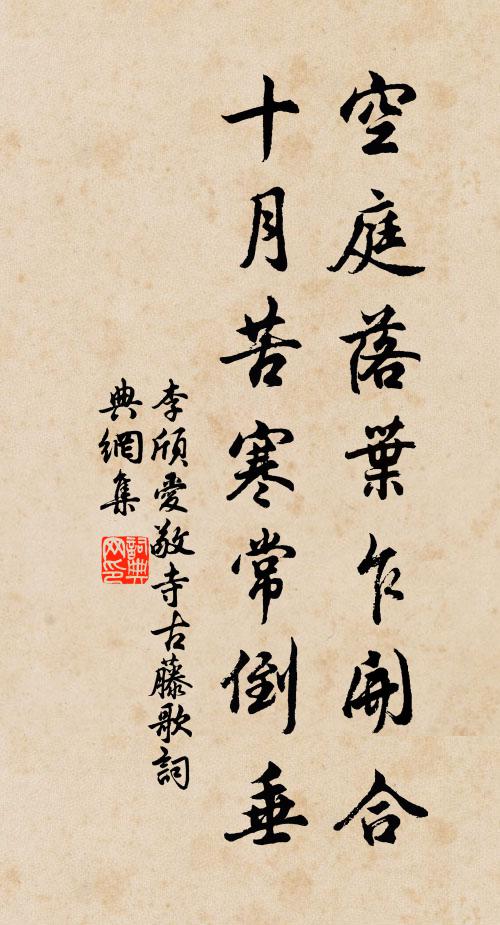 空庭落葉乍開合
十月苦寒常倒垂
李頎愛敬寺古藤歌詞
典網集
詞典
网印